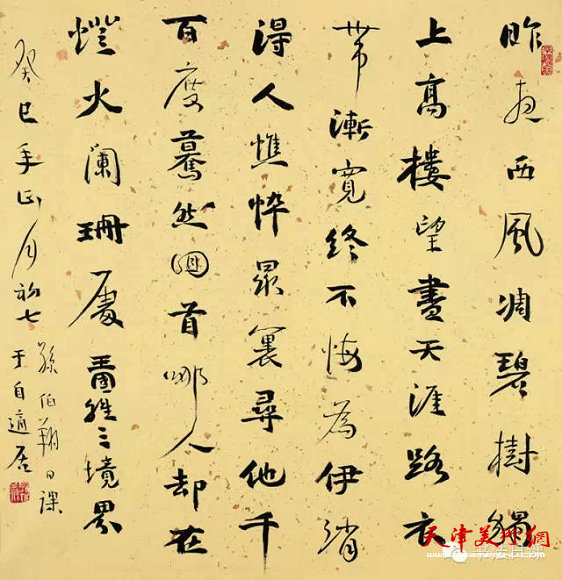 昨夜西風凋碧樹獨
上高樓望盡天涯路衣
帶漸寬終不悔為伊消
得人憔悴眾裏尋他千
百度驀然回首哪人却在
燈火闌珊處王國維三境界
癸巳年正月初七
孫伯翔日課
于自適居
天津美术網